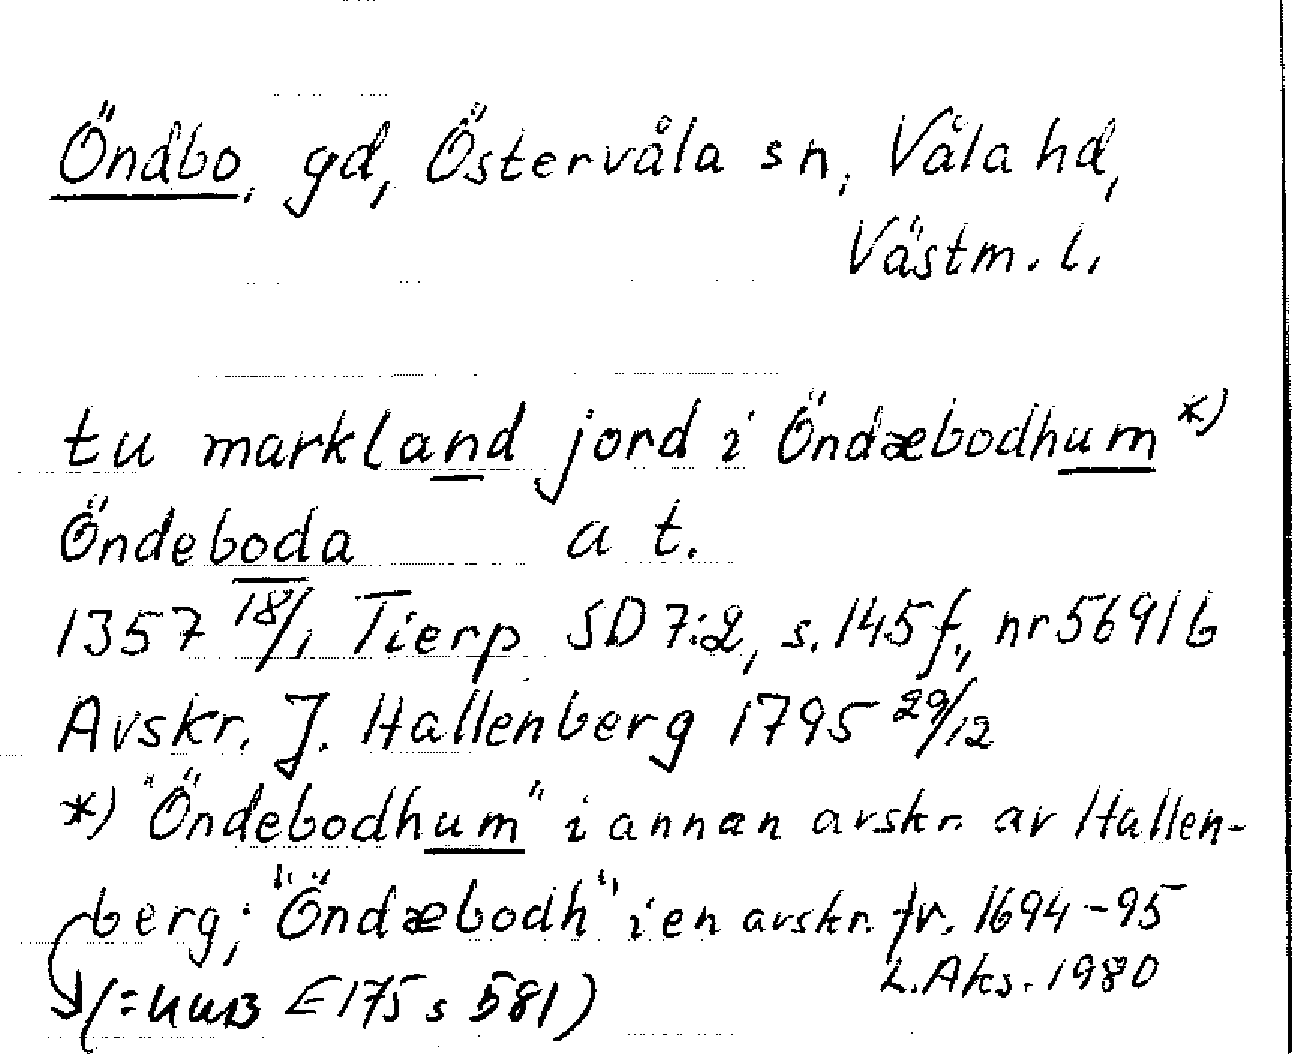 Öndbo, gd, Östervåla sn, Våla hd,
Västm. l.
tu markland jord i Öndæbodhum *)
Öndeboda a t.
1357 18/1 Tierp SD 7:2, s. 145 f., nr 5691 b
Avskr. J. Hallenberg 1795 29/12
*) "Öndebodhum" i annan avskr. av Hallen-
berg; "Öndæbodh" i en avskr. fr. 1694-95
(= UUB E 175 s 581)
L. Aks. 1980